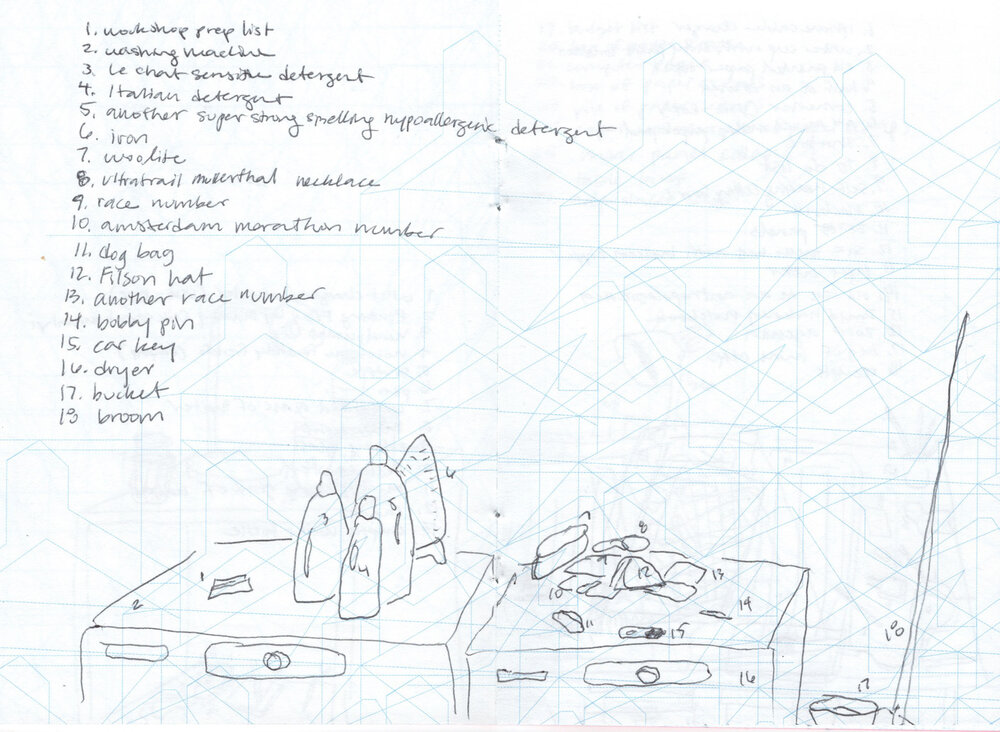 1. workshop prep list
2. washing machine
3. le chat sensitive detergent
4. Italian detergent
5. another super strong smelling hypoallergenic detergent
6. iron
7. woolite
8. ultratrail mullerthal necklace
9. race number
10. amsterdam marathon number
11. dog bag
12. Filson hat
13. another race number
14. bobby pin
15. car key
16. dryer
17. bucket
18 broom
6
5
3
4
1
2
7
8
9
12
13
10
14
11
15
16
18
17